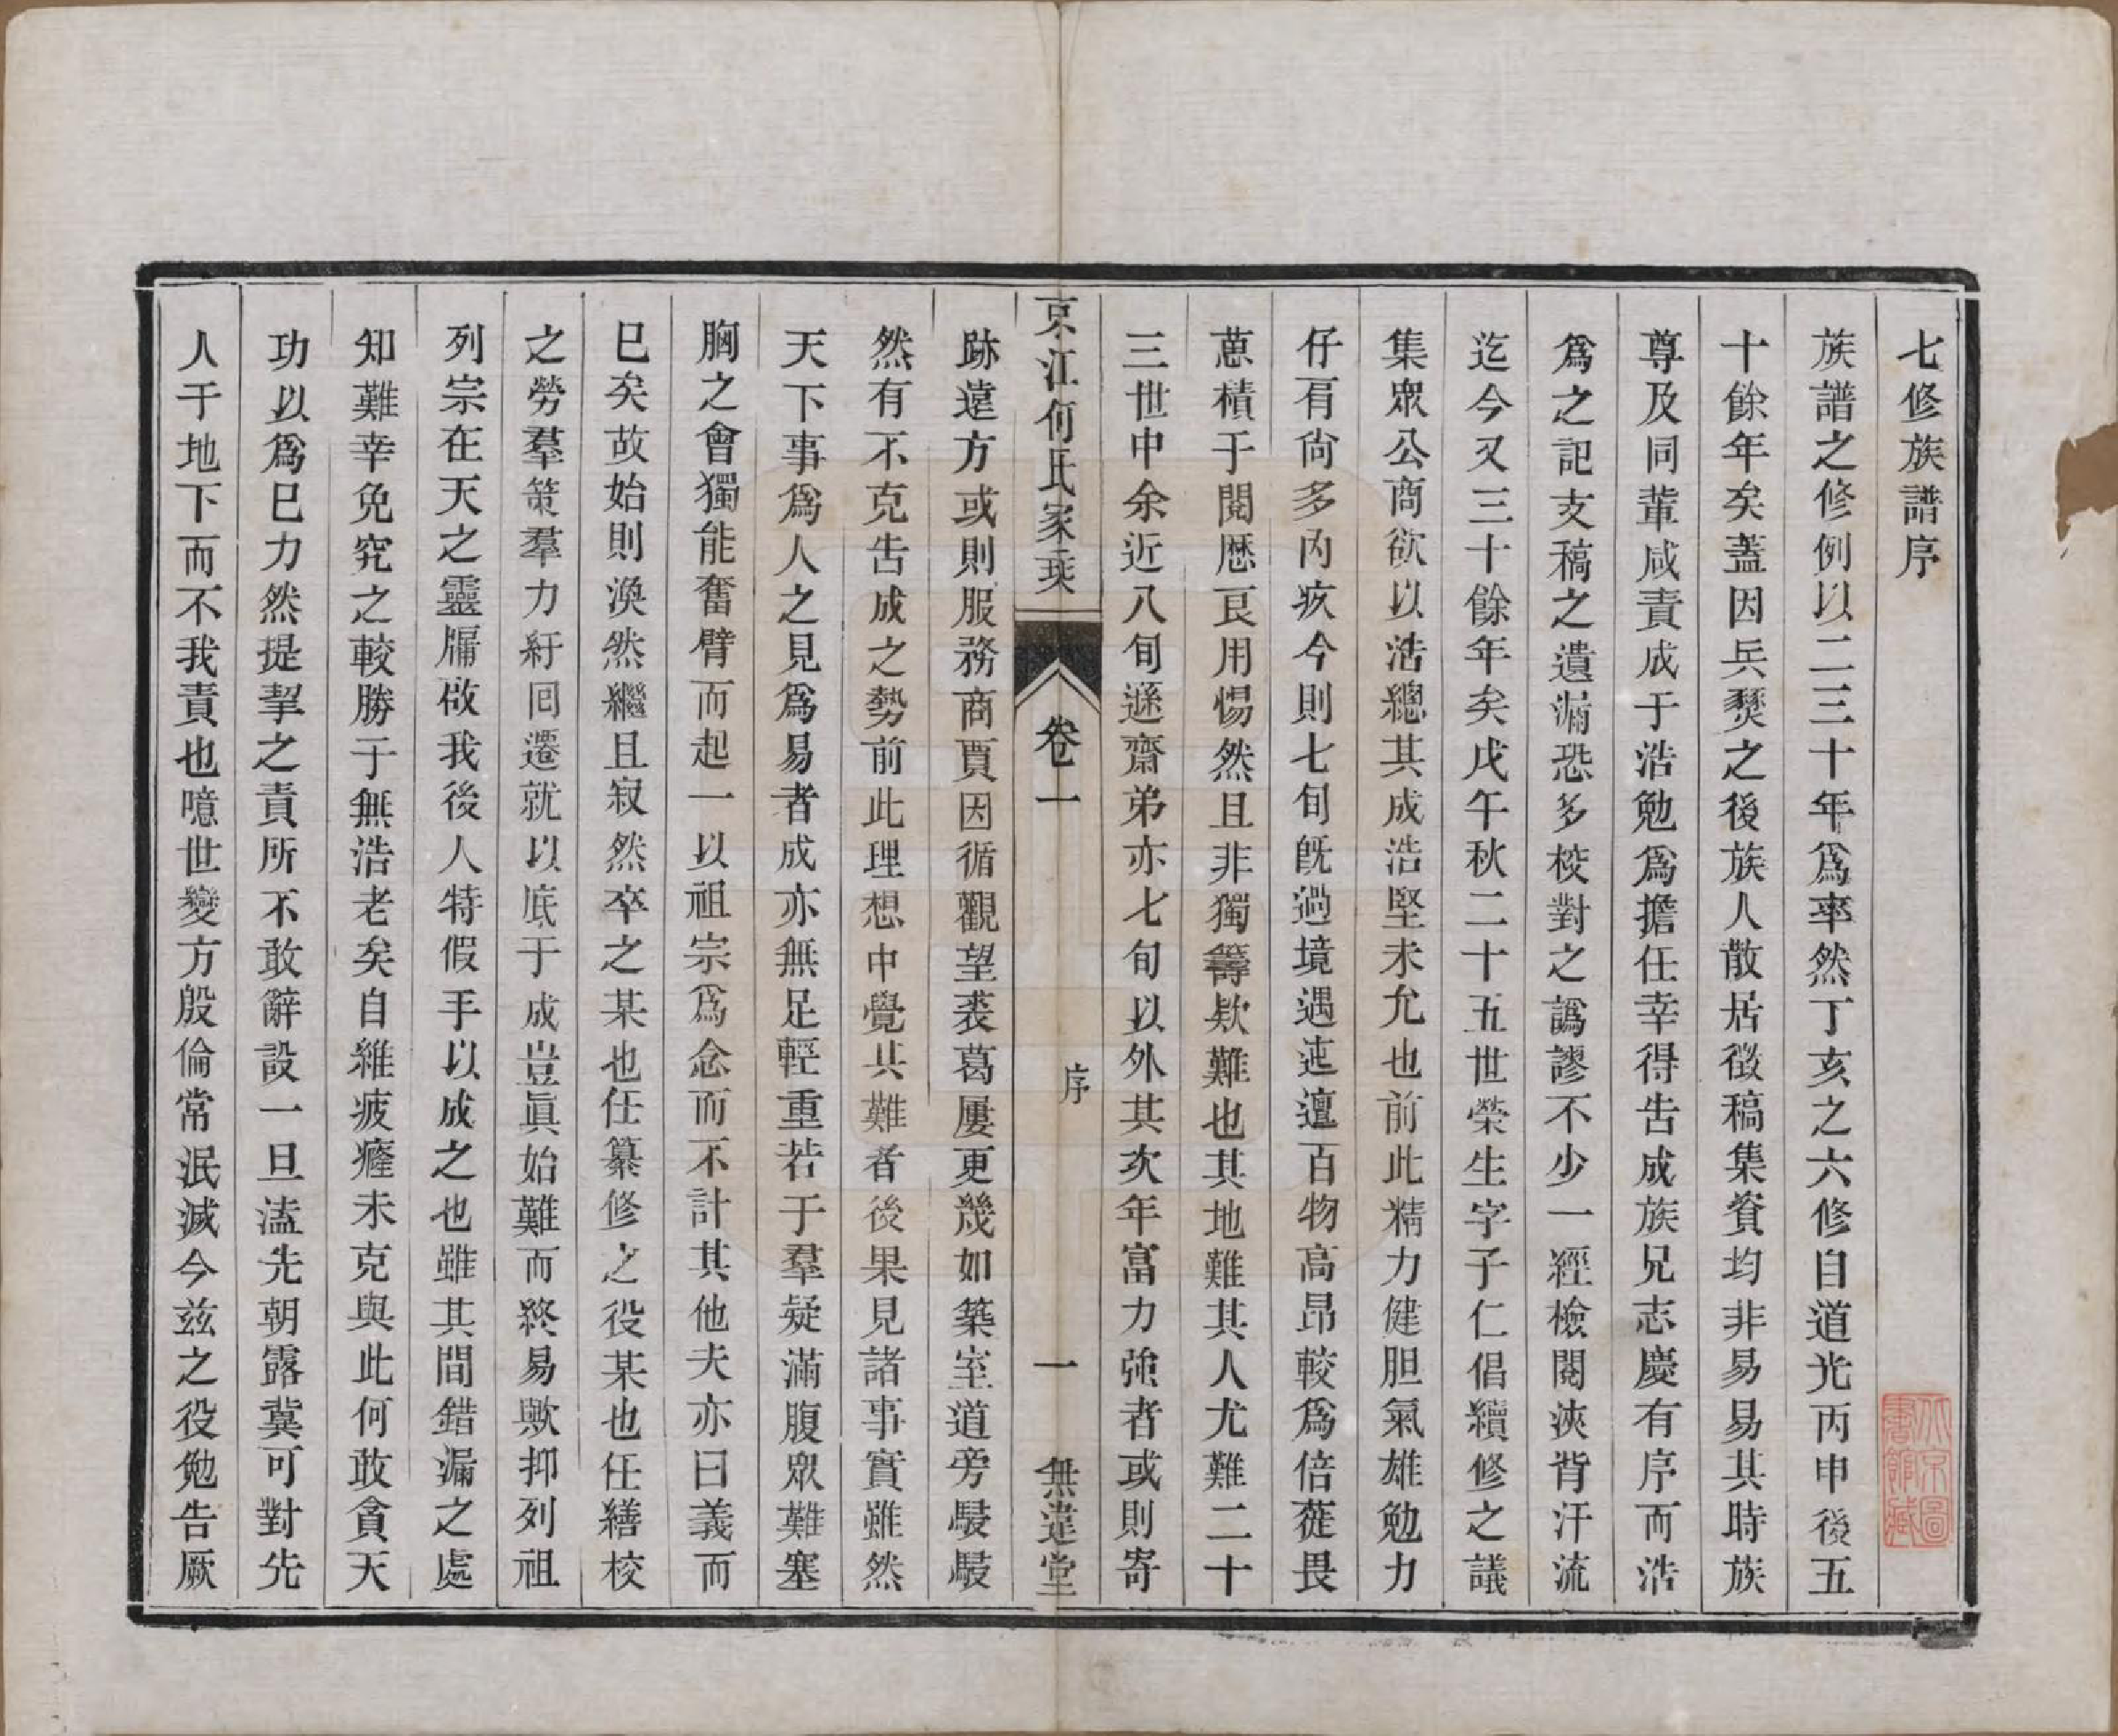 七修族譜序
族譜之修例以二三十年爲率然丁亥之六修自道光丙申後五
十餘年矣蓋因兵燹之後族人散居徵稿集資均非易易其時族
尊及同輩咸責成于浩勉爲擔任幸得告成族兄志慶有序而浩
爲之記支稿之遺漏恐多校對之譌謬不少一經檢閱浹背汗流
迄今又三十餘年矣戊午秋二十五世榮生字子仁倡續修之議
集眾公商欲以浩總其成浩堅未允也前此精力健胆氣雄勉力
仔肩尙多內疚今則七旬旣過境遇迍邅百物高昂較爲倍蓰畏
葸積于閱歷良用惕然且非獨籌欵難也其地難其人尤難二十
三世中余近八旬遜齋弟亦七旬以外其次年富力強者或則寄
京江何氏家乘
卷一
序
一
無違堂
跡遠方或則服務商賈因循觀望裘葛屢更幾如築室道旁駸駸
然有不克告成之勢前此理想中覺其難者後果見諸事實雖然
天下事爲人之見爲易者成亦無足輕重若于羣疑滿腹眾難塞
胸之會獨能奮臂而起一以祖宗爲念而不計其他夫亦曰義而
已矣故始則渙然繼且寂然卒之某也任纂修之役某也任繕校
之勞羣策羣力紆回遷就以底于成豈眞始難而終易歟抑列祖
列宗在天之靈牖啟我後人特假手以成之也雖其間錯漏之處
知難幸免究之較勝于無浩老矣自維疲癃未克與此何敢貪天
功以爲已力然提挈之責所不敢辭設一旦溘先朝露冀可對先
人于地下而不我責也噫世變方殷倫常泯滅今茲之役勉告厥